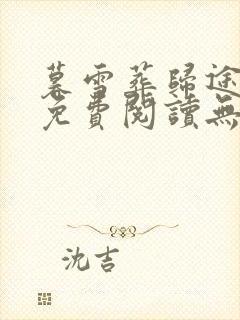 暮雪葬歸途
免費閱讀無
沈吉